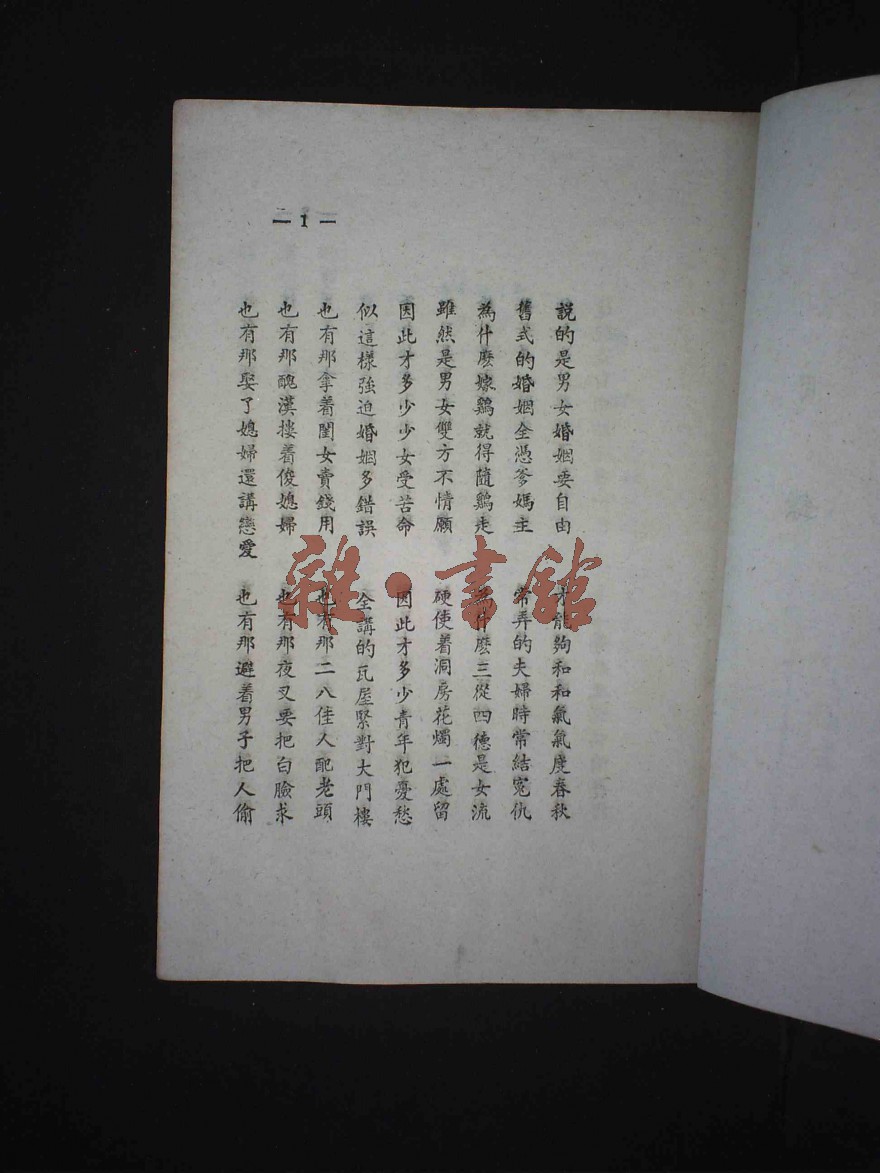 — 1 —
說的是男女婚姻要自由 才能夠和和氣氣度春秋
舊式的婚姻全憑爹媽主 常弄的夫婦時常結寃仇
為什麽嫁鷄就得隨鷄走 為什麽三從四德是女流
雖然是男女雙方不情願 硬使着洞房花燭一處留
因此才多少少女受苦命 因此才多少青年犯憂愁
似這樣強迫婚姻多錯誤 全講的瓦屋緊對大門樓
也有那拿着閨女賣錢用 也有那二八佳人配老頭
也有那醜漢摟着俊媳婦 也有那夜叉要把白臉求
也有那娶了媳婦還講戀愛 也有那避着男子把人偷
雜·書館